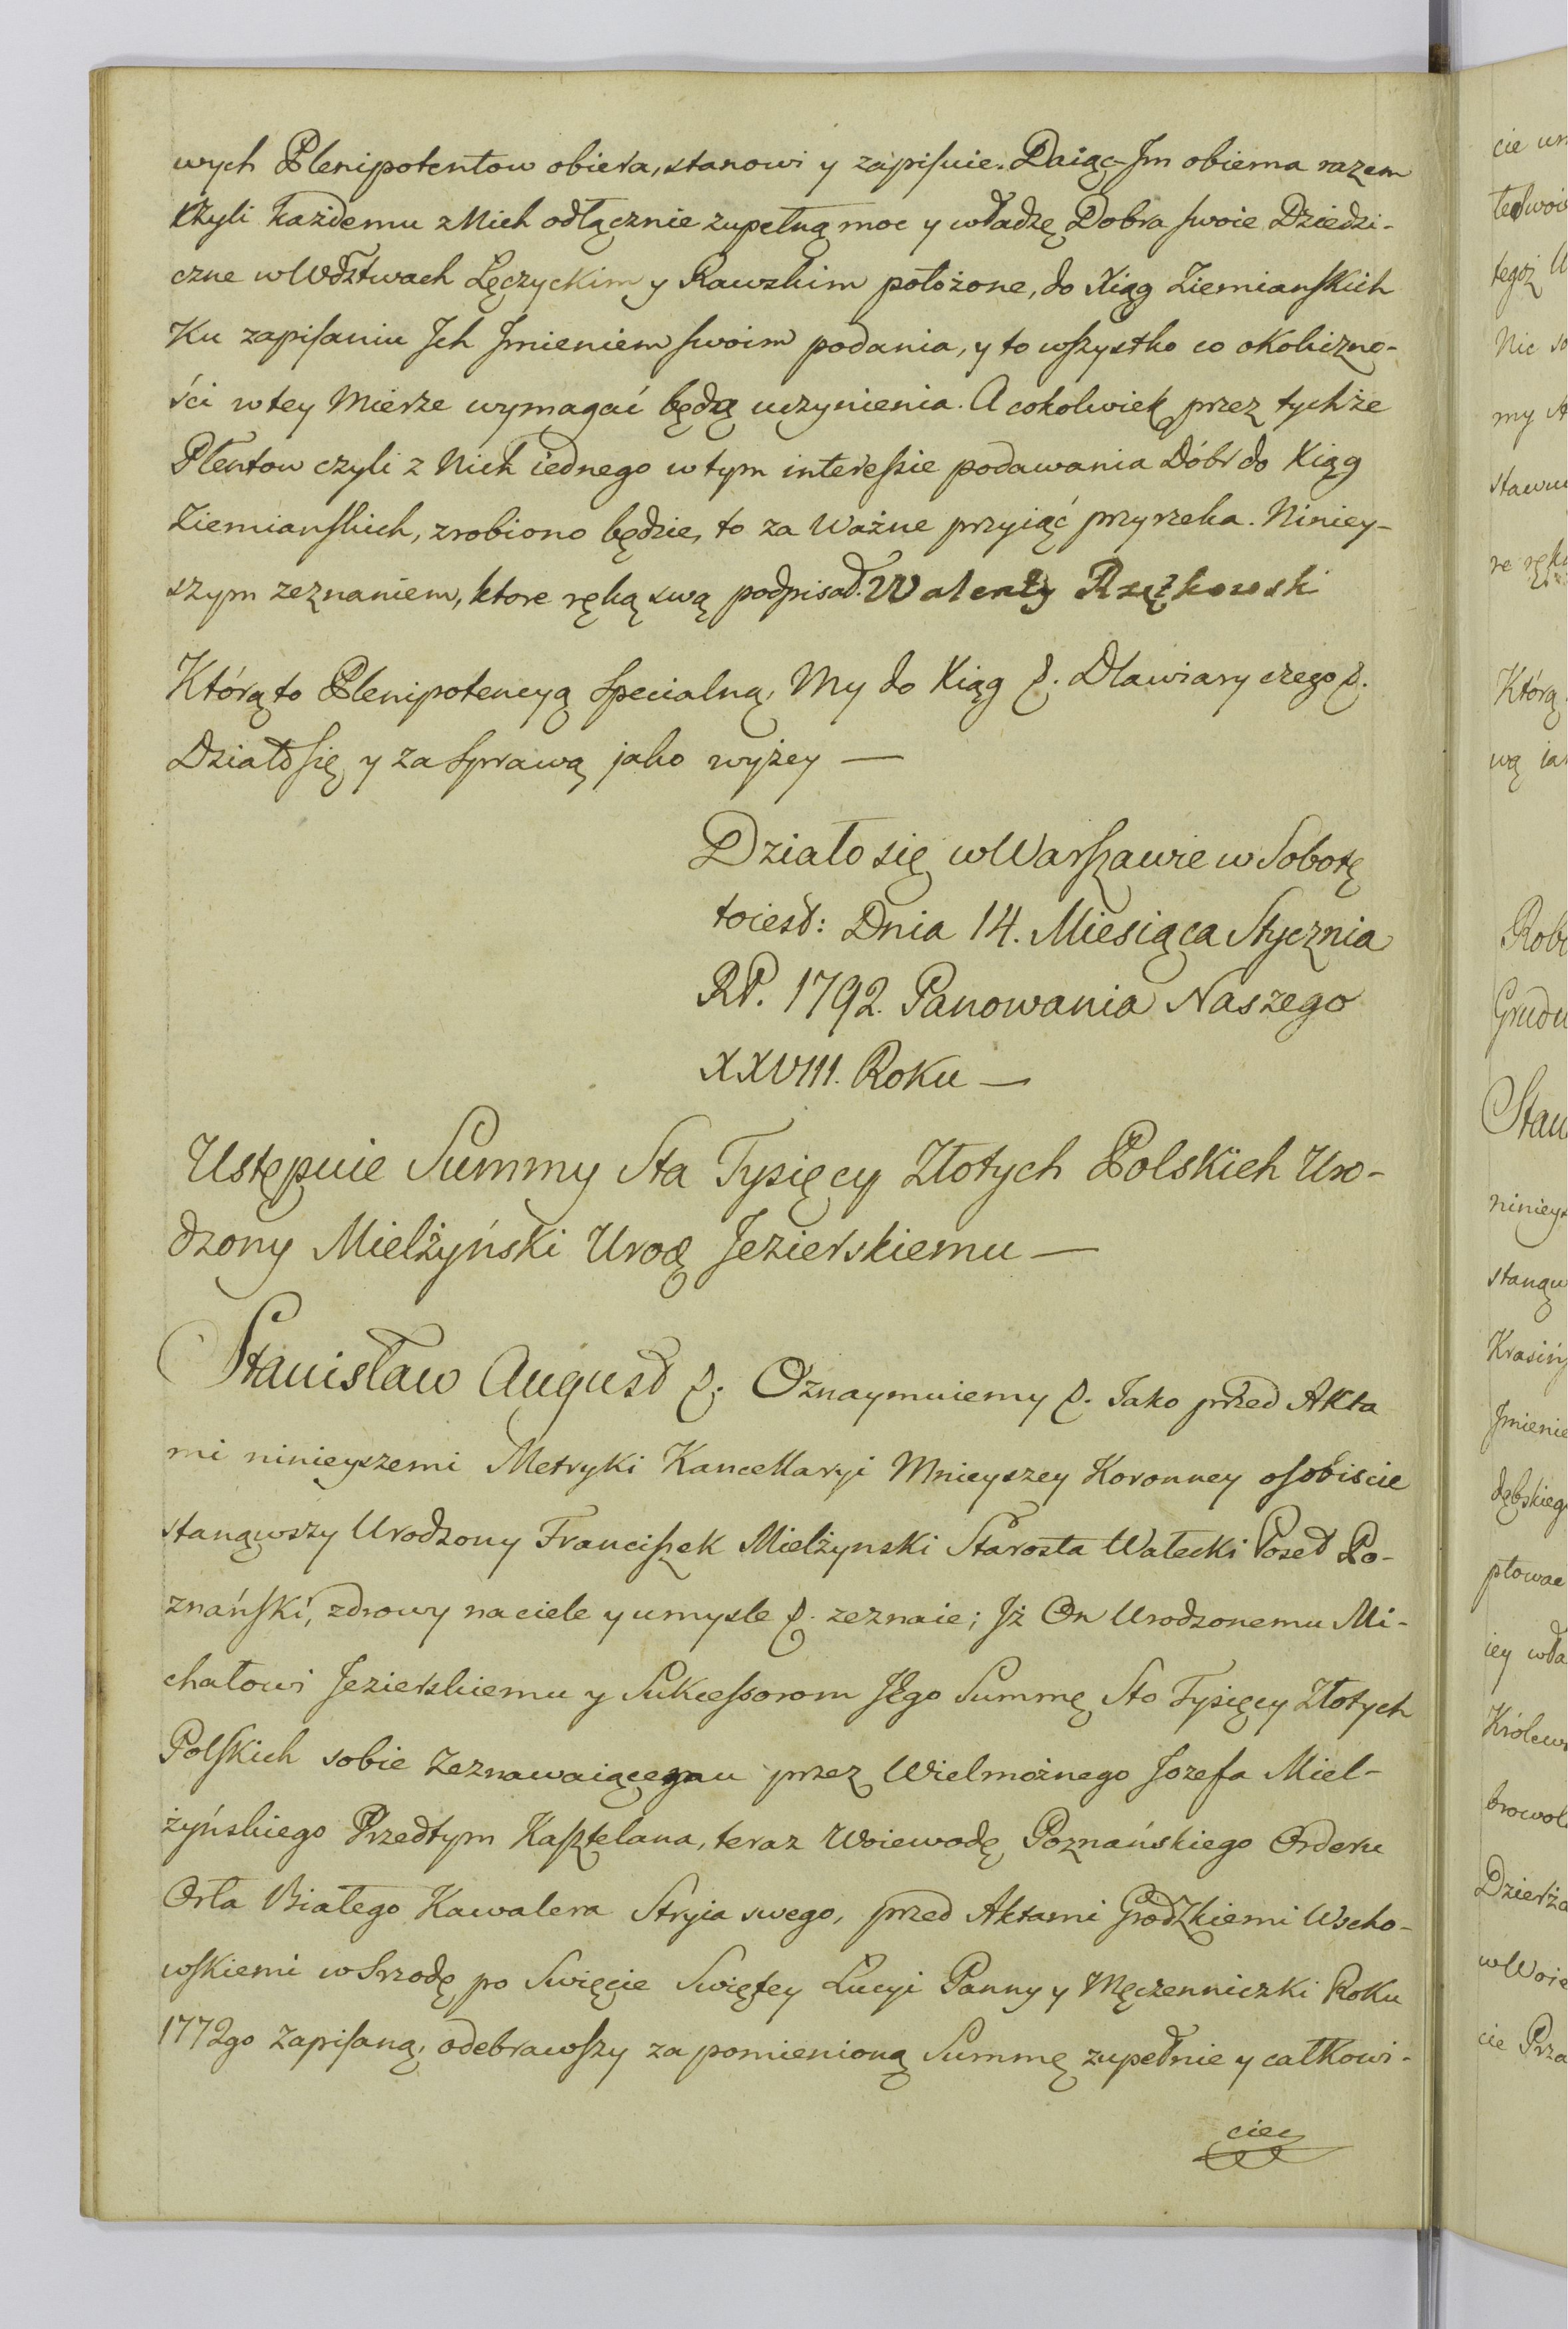 wych Plenipotentow obiera, stanowi y zapisuie. Daiąc Jm obiema razem
czyli każdemu z Nich odłącznie zupełną moc y władzę Dobra swoie Dziedzi-
czne w Wdztwach Łęczyckim y Rawskim położone, do Xiąg Ziemianskich
Ku zapisaniu Jch Jmieniem swoim podania, y to wszystko co okoliczno-
ści w tey Mierze wymagać będą uczynienia. A cokolwiek przez tychże
Plentow czyli z Nich iednego w tym interessie podawania Dóbr do Xiąg
Ziemianskich, zrobiono będzie, to za Ważne przyiąć przyrzeka. Niniey-
szym zeznaniem, ktore ręką swą podpisał. Walenty Rzętkowski
Którą to Plenipotencyą Specialną, My do Xiąg &. Dla wiary czego &.
Działo się y za Sprawą jako wyżey —
Działo się w Warszawie w Sobotę
toiest: Dnia 14. Miesiąca Stycznia
RP. 1792. Panowania Naszego
XXVIII. Roku —
Ustępuie Summy Sta Tysięcy Złotych Polskich Uro-
dzony Mielżyński Urod Jezierskiemu —
Stanisław August &. Oznaymuiemy &. Jako przed Akta
mi ninieyszemi Metryki Kancellaryi Mnieyszey Koronney osobiscie
stanąwszy Urodzony Franciszek Mielżynski Starosta Wałecki Poseł Po-
znański, zdrowy na ciele y umysle &. zeznaie; Jż On Urodzonemu Mi-
chałowi Jezierskiemu y Sukcessorom JEgo Summę Sto Tysięcy Złotych
Polskich sobie Zeznawaiącemu przez Wielmożnego Jozefa Miel-
żyńskiego Przedtym Kasztelana, teraz Woiewodę Poznańskiego Orderu
Orła Białego Kawalera Stryia swego, przed Aktami Grodzkiemi Wscho-
wskiemi w Srzodę po Swięcie Swiętey Lucyi Panny y Męczenniczki Roku
1772go Zapisaną, odebrawszy za pomienioną Summę zupełnie y całkowi-
ciec